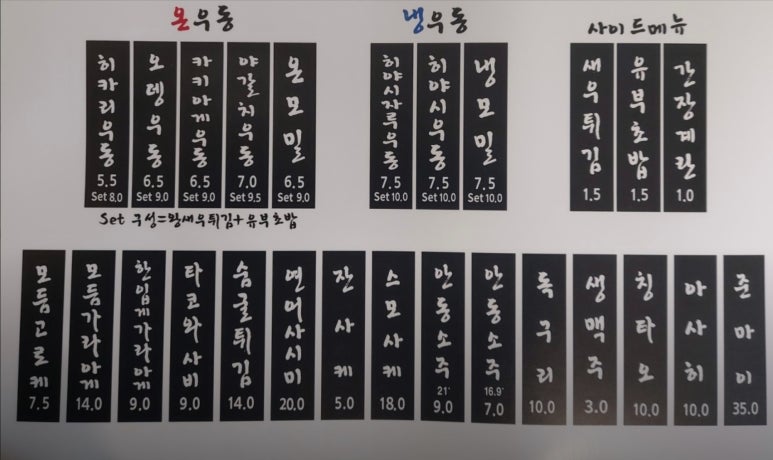 온우동
히카리우동
5.5
Set 8.0
오뎅우동
6.5
Set 9.0
카키아게우동
6.5
Set 9.0
야갈치우동
7.0
Set 9.5
온모밀
6.5
Set 9.0
Set 구성=왕새우튀김+유부초밥
냉우동
히야시자루우동
7.5
Set 10.0
히야시우동
7.5
Set 10.0
냉모밀
7.5
Set 10.0
사이드메뉴
새우튀김
1.5
유부초밥
1.5
간장계란
1.0
모듬고로케
7.5
모듬가라아게
14.0
한입게가라아게
9.0
타코와사비
9.0
숨굴튀김
14.0
연어사시미
20.0
잔사케
5.0
스모사케
18.0
안동소주
21°
9.0
안동소주
16.9°
7.0
독구리
10.0
생맥주
3.0
칭타오
10.0
아사히
10.0
준마이
35.0